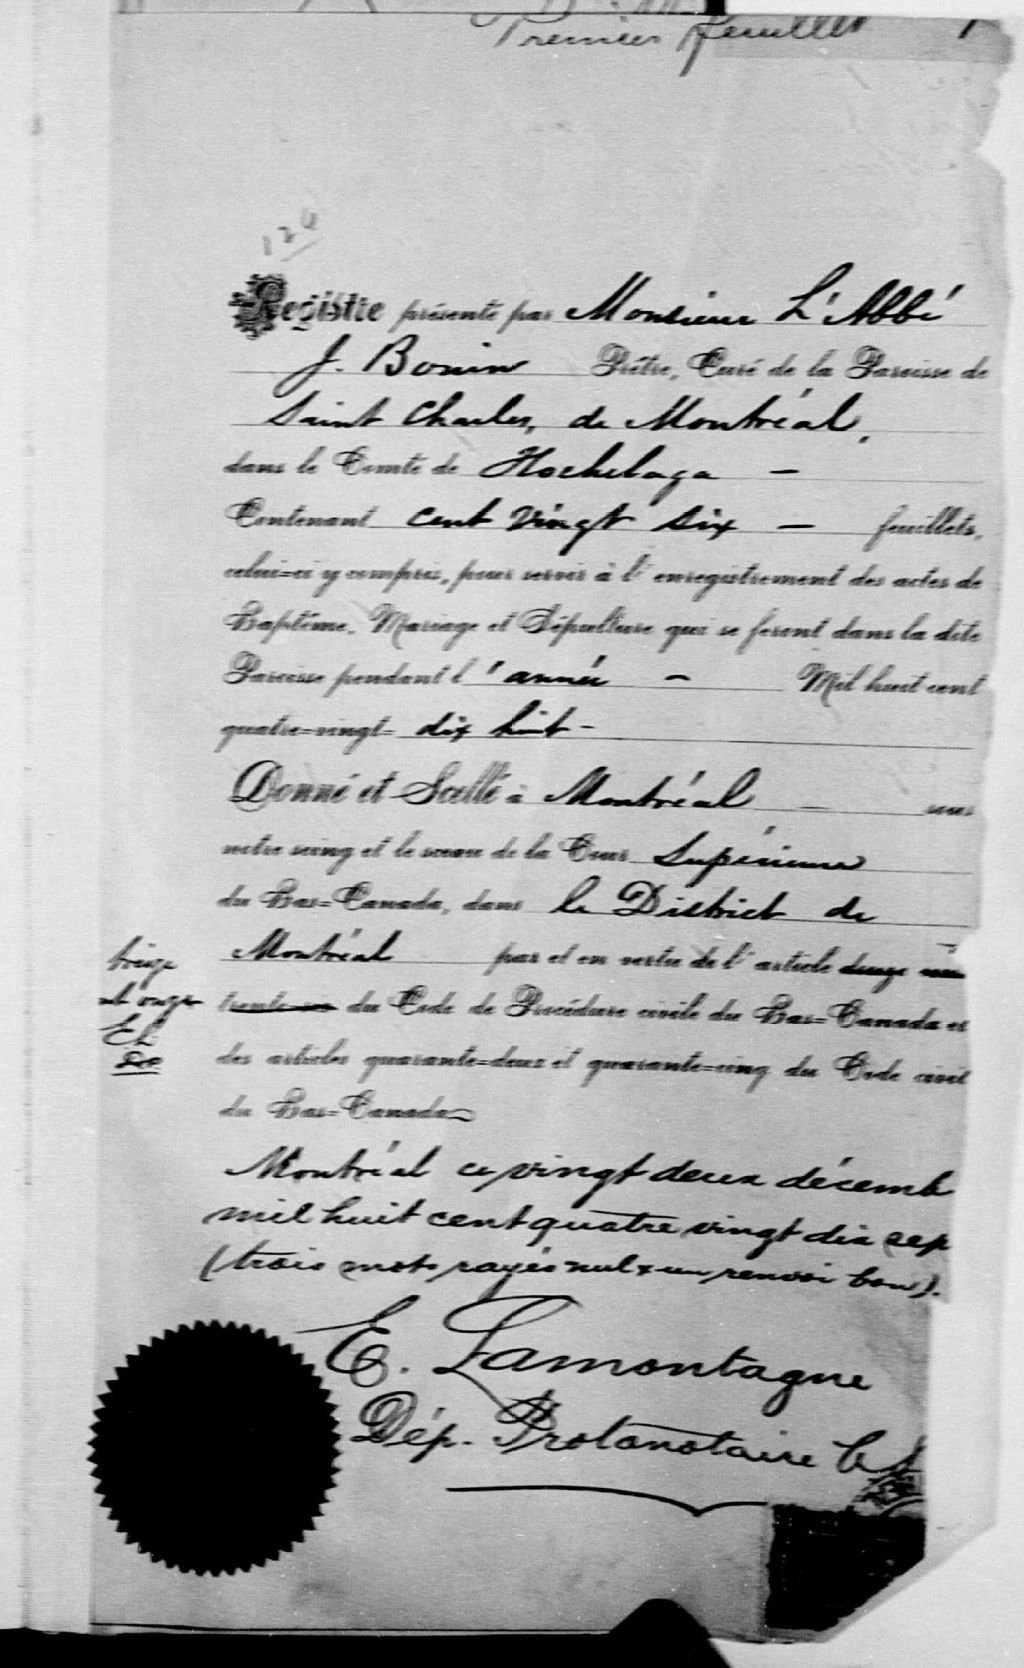 Premier feuillet 1
124
Registre présenté par Monsieur L'Abbé
J. Bonin Prêtre, Curé de la Paroisse de
Saint Charles, de Montréal,
dans le Comté de Hochelaga —
Contenant cent vingt six — feuillets,
celui=ci y compris, pour servir à l'enregistrement des actes de
Baptême, Mariage et Sépulture qui se feront dans la dite
Paroisse pendant l'année — Mil huit cent
quatre=vingt= dix huit -
Donné et Scellé à Montréal — sous
notre seing et le sceau de la Cour Supérieure
du Bas=Canada, dans le District de
Montréal par et en vertu de l'article douze
treize
trente du Code de Procédure civile du Bas=Canada et
onze
E L
des articles quarante=deux et quarante=cinq du Code civil
du Bas=Canada
Montréal ce vingt deux décemb
mil huit cent quatre vingt dix sep
(trois mots rayés nuls & un renvoi bon).
E. Lamontagne
Dép. Protonotaire